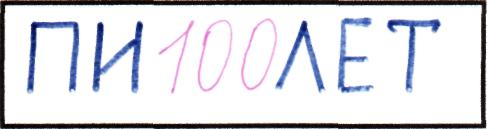 ПИ100ЛЕТ